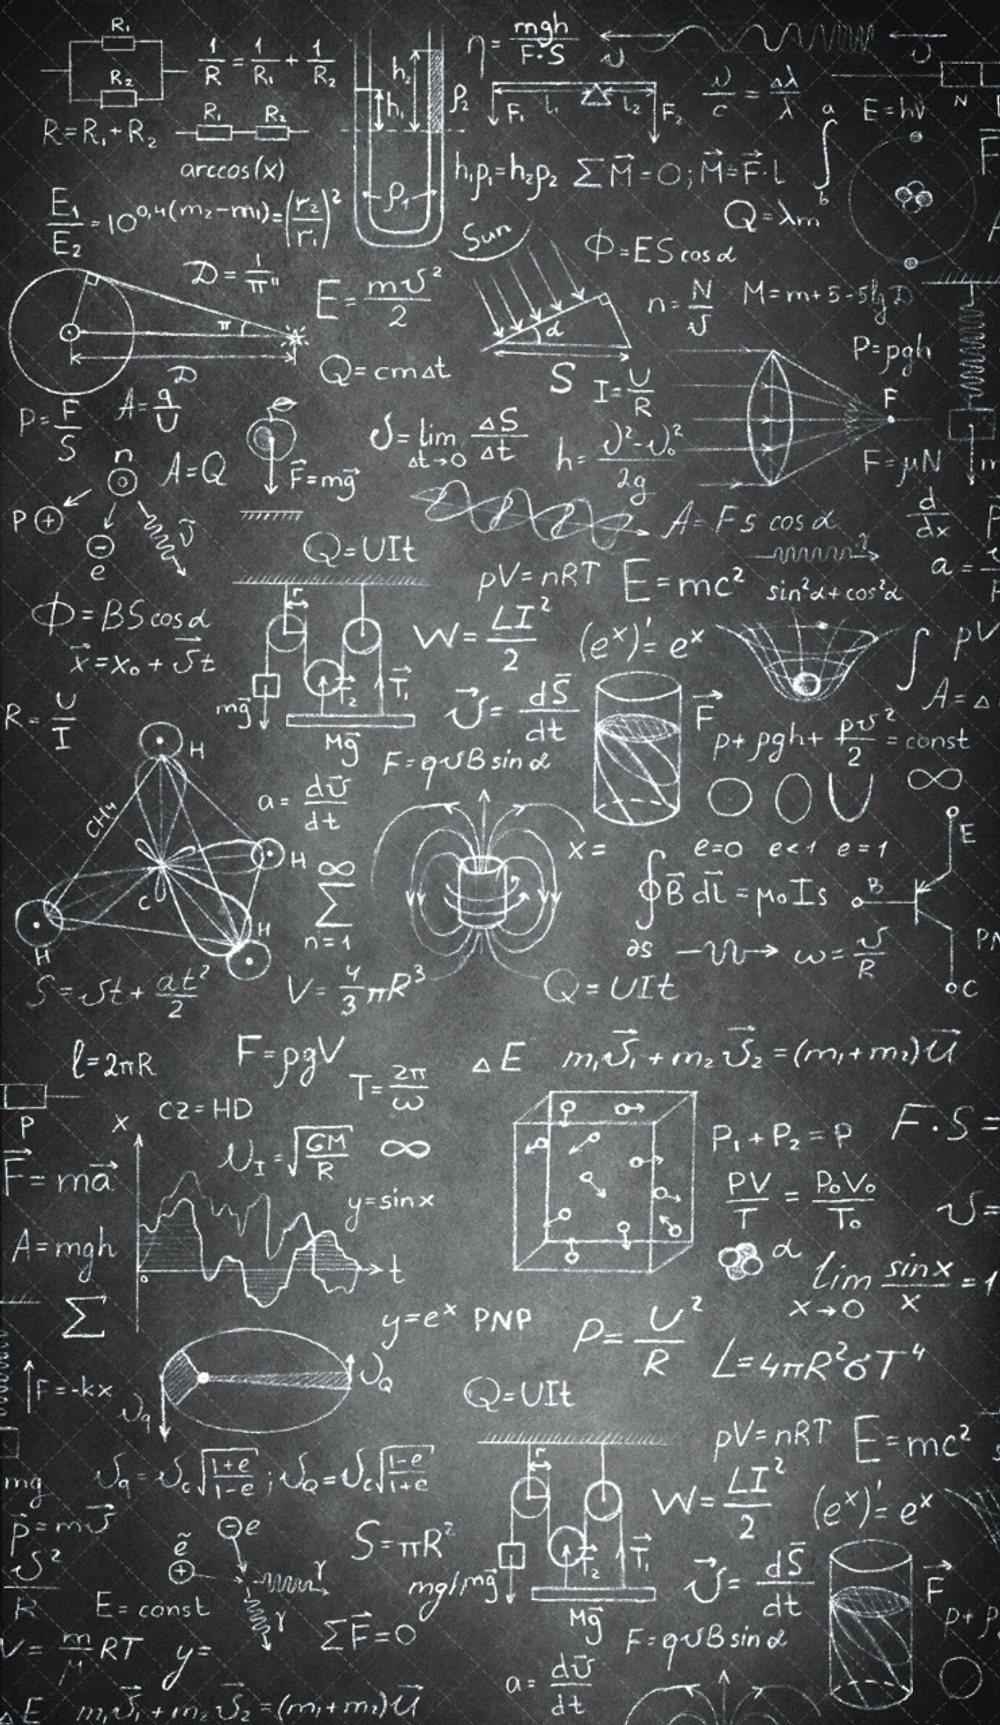 R₁
R₂
1/R = 1/R₁ + 1/R₂
h₂
h₁
ρ₂
η = mgh/F·S
υ
υ
R=R₁+R₂
R₁ R₂
F₁ l₁ l₂ F₂
υ/c = Δλ/λ
a
∫
b
E=hν
N
arccos(x)
h₁ρ₁=h₂ρ₂
ΣM⃗=0; M⃗=F⃗·l
F⃗
E₁/E₂ = 10^0,4(m₂-m₁) = (r₂/r₁)²
ρ₁
Q=λm
Sun
Φ=ES cosα
D = 1/π"
E = mυ²/2
α
n = N/υ
M=m+5-5lg D
π
D
Q=cmΔt
S
I = U/R
P=ρgh
F
P = F/S
A = q/U
υ = lim Δt→0 ΔS/Δt
h = υ²-υ₀²/2g
F=μN
n
A=Q
F⃗=mg⃗
P ⊕
υ⃗
e
A=Fs cosα
d/dx
Q=UIt
pV=nRT
E=mc²
γ
sin²α+cos²α
a =
Φ=BS cosα
r
W = LI²/2
(eˣ)'=eˣ
∫
pV
x⃗=x₀+υ⃗t
F₂
T⃗₁
A=Δ
mg⃗
R = U/I
Mg⃗
υ⃗ = dS⃗/dt
F⃗
p+ρgh+ρυ²/2=const
H
F=qυB sinα
∞
CH₄
a = dυ⃗/dt
x=
e=0 e<1 e=1
E
H
∞
Σ
n=1
∮B⃗dl⃗=μ₀Is
∂s
B
C
H
H
ω = υ/R
PN
C
S=υt+at²/2
V = 4/3 πR³
Q=UIt
l=2πR
F=ρgV
ΔE
m₁υ⃗₁+m₂υ⃗₂=(m₁+m₂)u⃗
T = 2π/ω
P
x
cz=HD
P₁+P₂=P
F·S=
F⃗=ma⃗
υ_I=√GM/R
∞
y=sinx
PV/T = P₀V₀/T₀
υ=
A=mgh
0
t
α
lim x→0 sinx/x = 1
Σ
y=eˣ PNP
P = U²/R
L=4πR²σT⁴
F=-kx
υ_Q
υ_q
Q=UIt
pV=nRT
E=mc²
mg
υ_q=υ_c√1+e/1-e; υ_Q=υ_c√1-e/1+e
r
W = LI²/2
(eˣ)'=eˣ
p⃗=mυ⃗
e
S=πR²
υ²/R
ẽ
γ
mg/mg⃗
F₂
T⃗₁
υ⃗ = dS⃗/dt
F⃗
E=const
γ
ΣF⃗=0
Mg⃗
F=qυB sinα
p+ρ
V = m/M RT
y=
a = dυ⃗/dt
ΔE
m₁υ⃗₁+m₂υ⃗₂=(m₁+m₂)u⃗